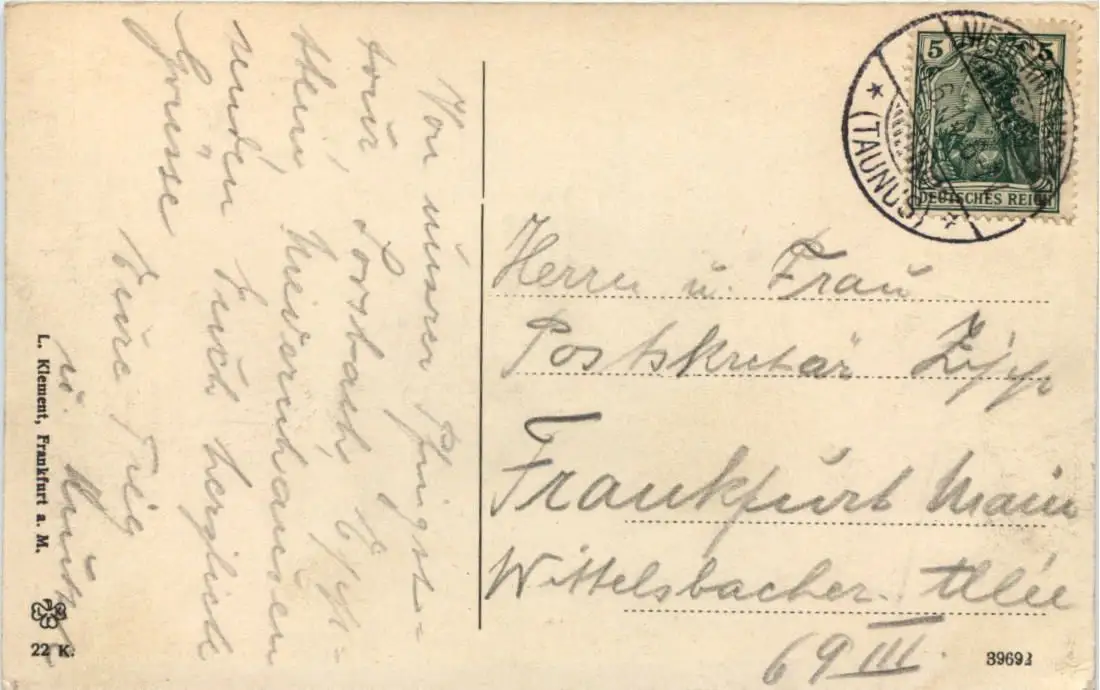 Von unsrer Pfingst-
tour, Lorsbach, Epp-
stein, Niedernhausen
senden Euch herzliche
Grüsse
Eure
u.
L. Klement, Frankfurt a. M.
22 K.
5 5
DEUTSCHES REICH
NIEDERNHAUSEN
* (TAUNUS) *
Herrn u. Frau
Postsekretär
Frankfurt Main
Wittelsbacher. Allée
69 III.
39693